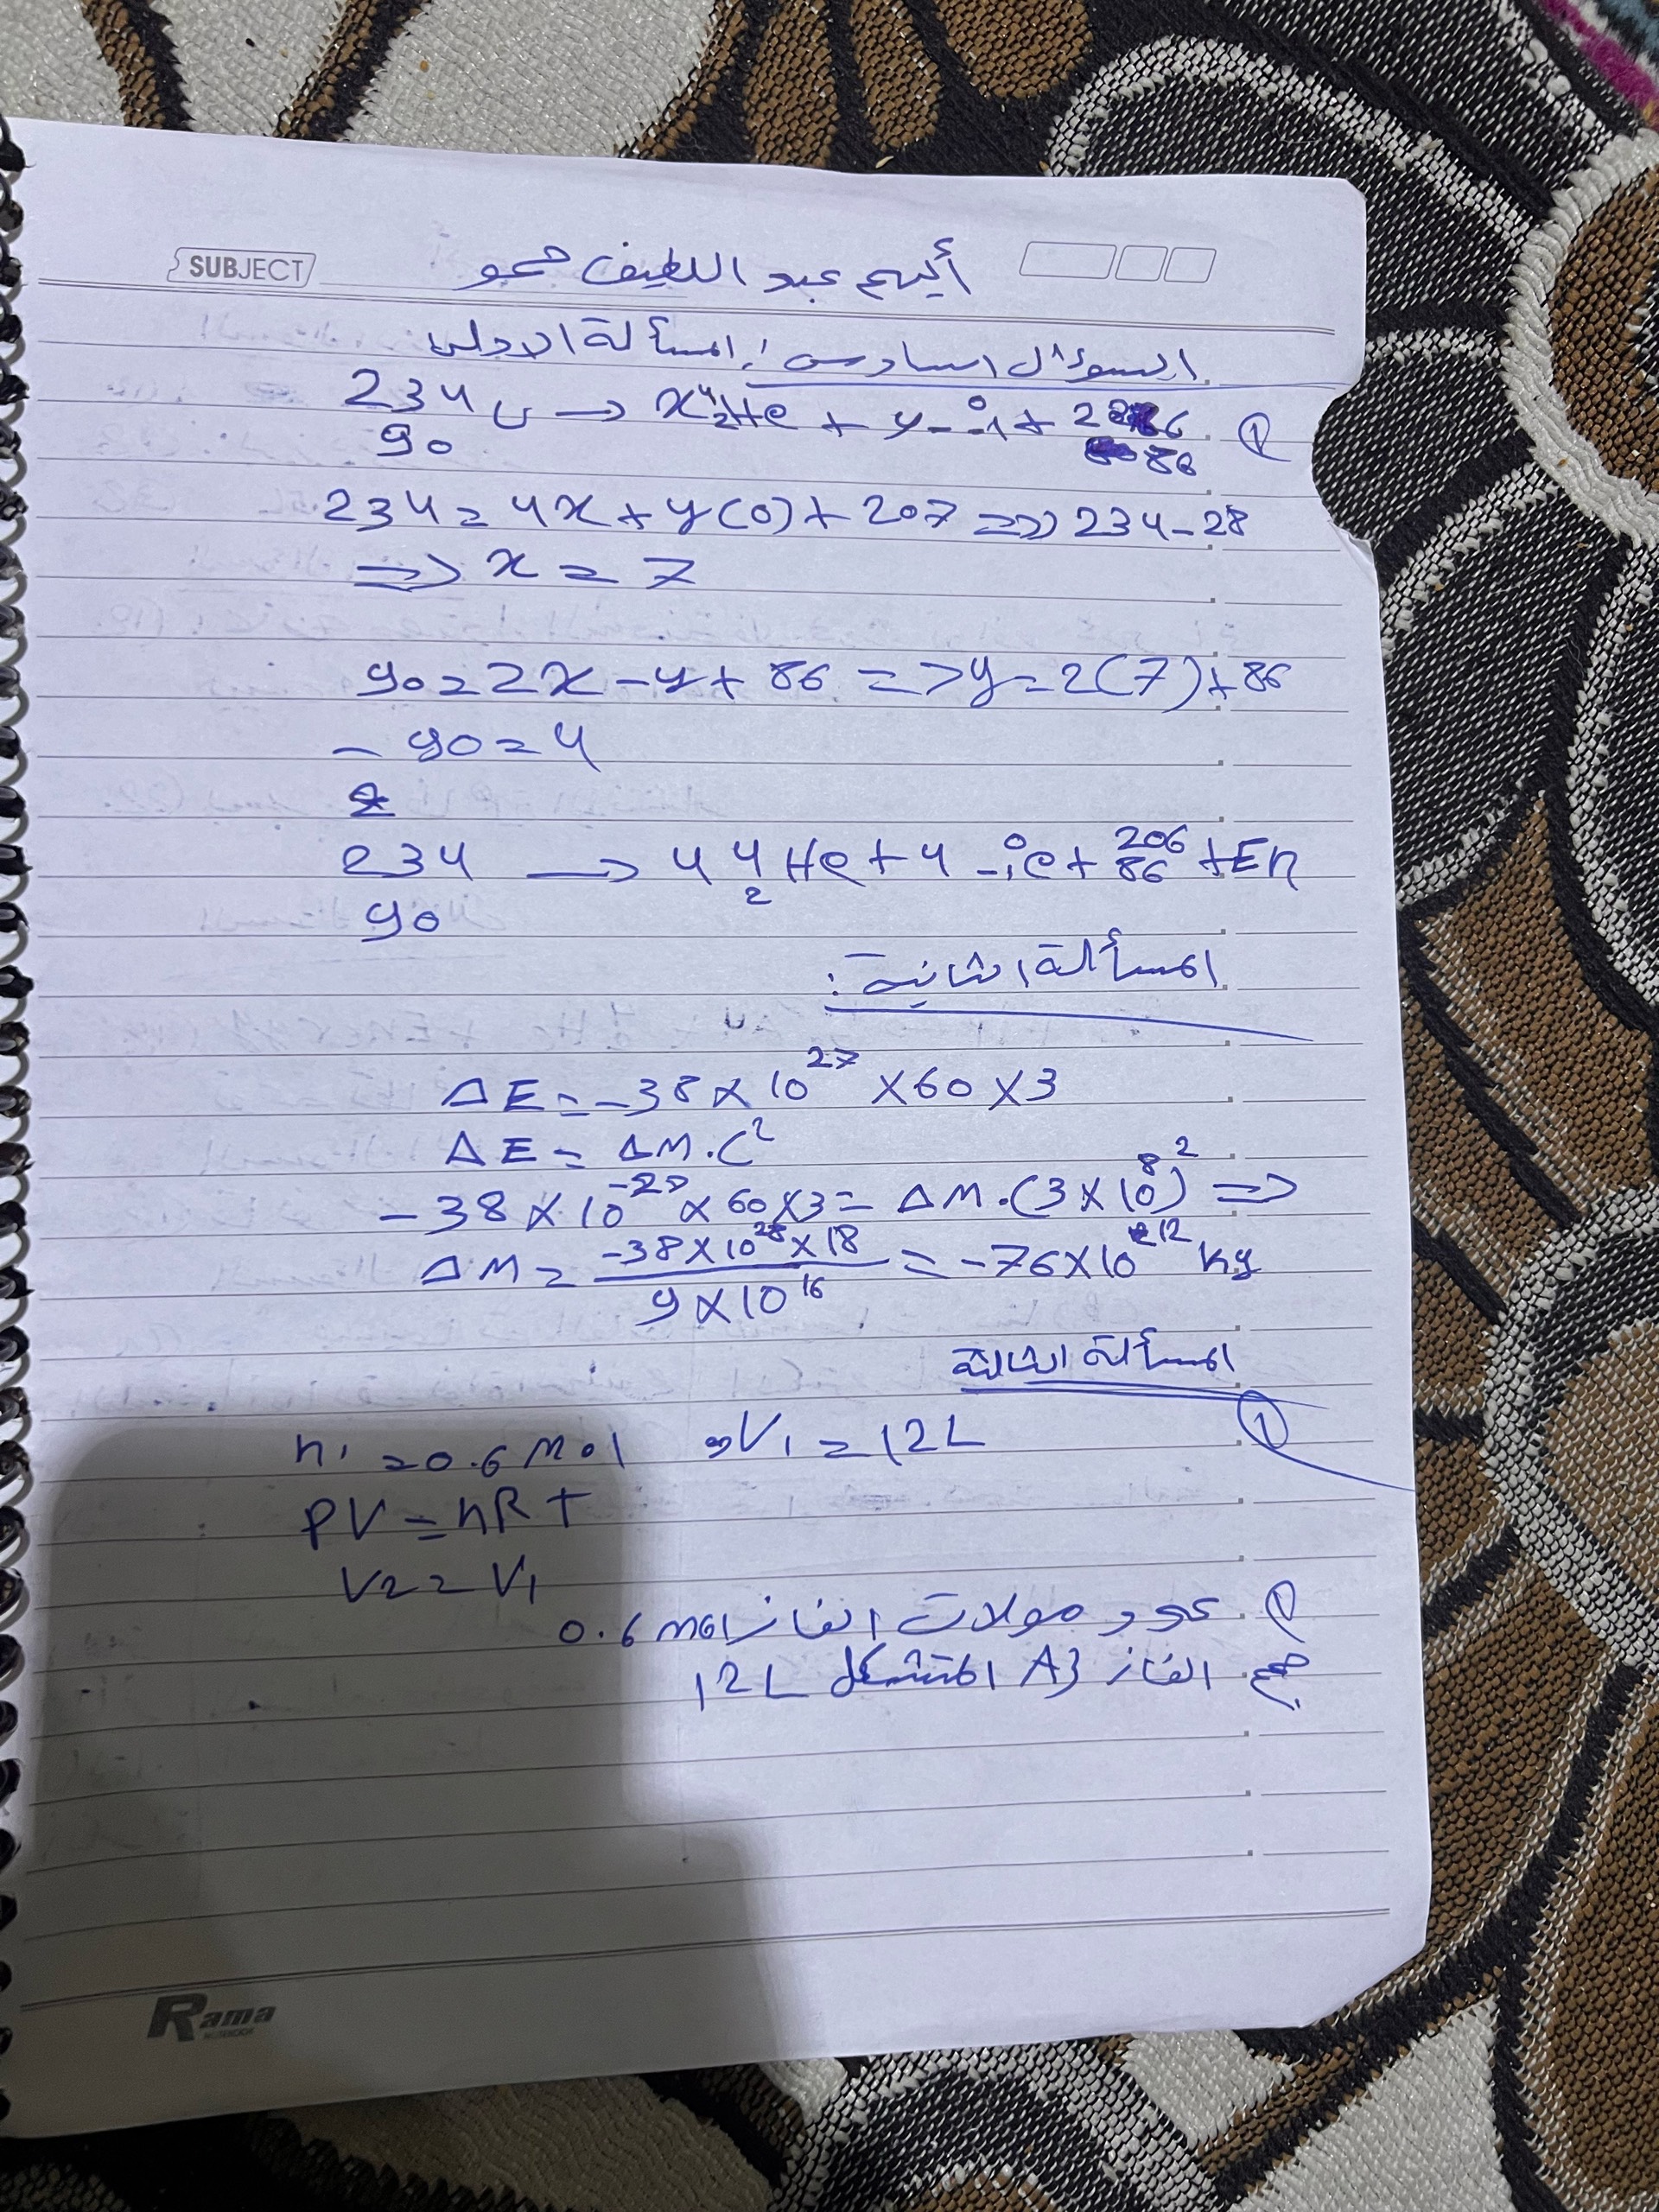 SUBJECT
أيهم عبد اللطيف حمو
السؤال السادس: المسألة الاولى
① 234 90 U → x 4 2 He + y 0 -1 + 86
234 = 4x + y(0) + 207 => 234 - 28
=> x = 7
90 = 2x - y + 86 => y = 2(7) + 86
- 90 = 4
234 90 → 4 4 2 He + 4 0 -1 e + 206 86 + En
المسألة الثانية:
ΔE = -38 × 10^27 × 60 × 3
ΔE = ΔM.C^2
-38 × 10^-27 × 60 × 3 = ΔM.(3 × 10^8)^2 =>
ΔM = -38 × 10^28 × 18 / 9 × 10^16 = -76 × 10^12 kg
المسألة الثالثة
①
n1 = 0.6 mol و V1 = 12 L
PV = nRT
V2 = V1
عدد مولات الغاز 0.6 mol
حجم الغاز A3 المتشكل 12 L
Rama